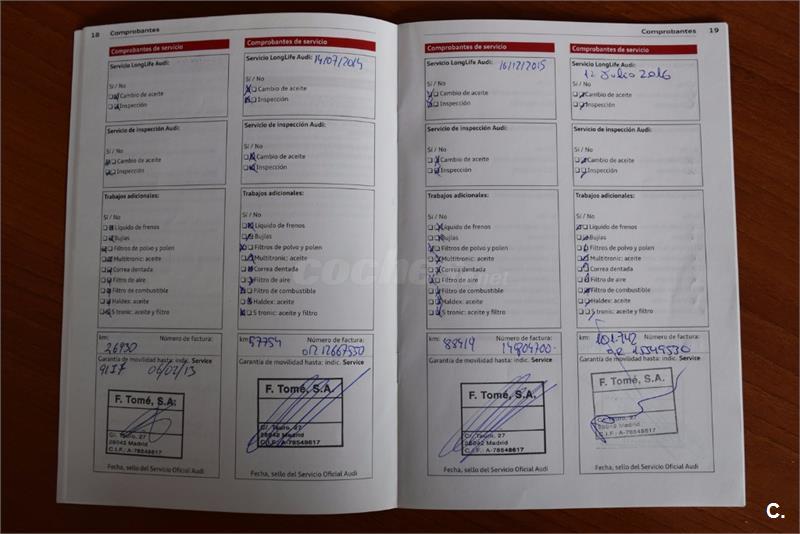 18 Comprobantes
Comprobantes de servicio
Servicio LongLife Audi:
Sí / No
Cambio de aceite
Inspección
Servicio de inspección Audi:
Sí / No
Cambio de aceite
Inspección
Trabajos adicionales:
Sí / No
Líquido de frenos
Bujías
Filtros de polvo y polen
Multitronic: aceite
Correa dentada
Filtro de aire
Filtro de combustible
Haldex: aceite
S tronic: aceite y filtro
km: Número de factura:
26930
Garantía de movilidad hasta: indic. Service
06/02/13
F. Tomé, S.A.
C/. Tauro, 27
28042 Madrid
C.I.F.: A-78548617
Fecha, sello del Servicio Oficial Audi
Comprobantes de servicio
Servicio LongLife Audi: 14/07/2014
Sí / No
Cambio de aceite
Inspección
Servicio de inspección Audi:
Sí / No
Cambio de aceite
Inspección
Trabajos adicionales:
Sí / No
Líquido de frenos
Bujías
Filtros de polvo y polen
Multitronic: aceite
Correa dentada
Filtro de aire
Filtro de combustible
Haldex: aceite
S tronic: aceite y filtro
km: 57754 Número de factura:
12667550
Garantía de movilidad hasta: indic. Service
F. Tomé, S.A.
C/. Tauro, 27
28042 Madrid
C.I.F.: A-78548617
Fecha, sello del Servicio Oficial Audi
Comprobantes 19
Comprobantes de servicio
Servicio LongLife Audi: 16/12/2015
Sí / No
Cambio de aceite
Inspección
Servicio de inspección Audi:
Sí / No
Cambio de aceite
Inspección
Trabajos adicionales:
Sí / No
Líquido de frenos
Bujías
Filtros de polvo y polen
Multitronic: aceite
Correa dentada
Filtro de aire
Filtro de combustible
Haldex: aceite
S tronic: aceite y filtro
km: Número de factura:
Garantía de movilidad hasta: indic. Service
F. Tomé, S.A.
C/. Tauro, 27
28042 Madrid
C.I.F.: A-78548617
Fecha, sello del Servicio Oficial Audi
Comprobantes de servicio
Servicio LongLife Audi:
12 Julio 2016
Sí / No
Cambio de aceite
Inspección
Servicio de inspección Audi:
Sí / No
Cambio de aceite
Inspección
Trabajos adicionales:
Sí / No
Líquido de frenos
Bujías
Filtros de polvo y polen
Multitronic: aceite
Correa dentada
Filtro de aire
Filtro de combustible
Haldex: aceite
S tronic: aceite y filtro
km: 101.742 Número de factura:
15549530
Garantía de movilidad hasta: indic. Service
F. Tomé, S.A.
28042 Madrid
C.I.F.: A-78548617
Fecha, sello del Servicio Oficial Audi
coches.net
C.